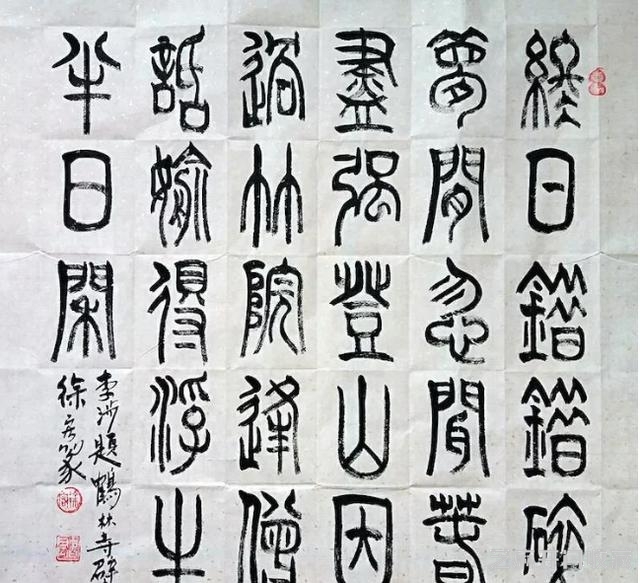 終日錯錯碎
夢間忽聞春
盡強登山因
過竹院逢僧
話媮得浮生
半日閑
李涉題鶴林寺壁
徐篆